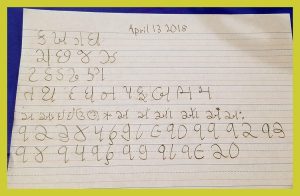 April 13 2018
ક ખ ગ ઘ
ચ છ જ ઝ
ટ ઠ ડ ઢ ણ
ત થ દ ધ ન પ ફ બ ભ મ
અ આ ઇ ઈ ઉ ઊ એ ઐ ઓ ઔ અં અઃ
૧ ૨ ૩ ૪ ૫ ૬ ૭ ૮ ૯ ૧૦ ૧૧ ૧૨ ૧૩
૧૪ ૧૫ ૧૬ ૧૭ ૧૮ ૧૯ ૨૦